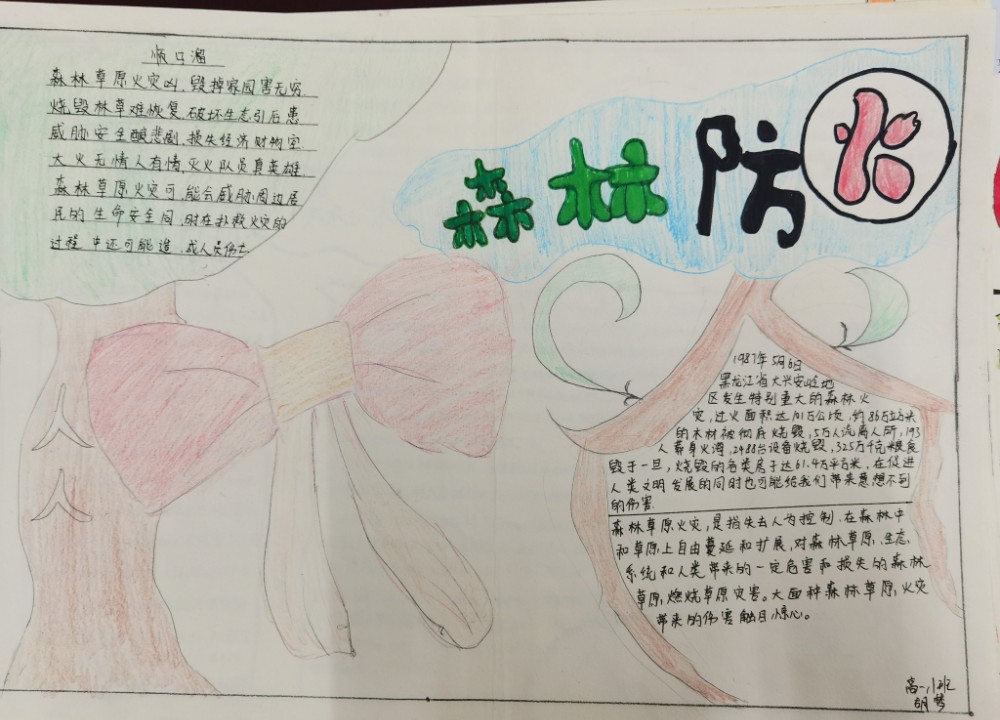 顺口溜
森林草原火灾凶,毁掉家园害无穷
烧毁林草难恢复,破坏生态引后患
威胁安全酿悲剧,损失经济财物空
大火无情人有情,灭火队员真英雄
森林草原火灾可能会威胁周边居
民的生命安全同时在扑救火灾的
过程中还可能造成人员伤亡
森林防火
1987年5月6日
黑龙江省大兴安岭地
区发生特别重大的森林火
灾,过火面积达101万公顷,约86万立方米
的木材被彻底烧毁,5万人流离人所,193
人葬身火海,2488台设备烧毁,325万千克粮食
毁于一旦,烧毁的各类房子达61.4万平方米,在促进
人类文明发展的同时也可能给我们带来意想不到
的伤害.
森林草原火灾,是指失去人为控制,在森林中
和草原上自由蔓延和扩展,对森林草原,生态
系统和人类带来的一定危害和损失的森林
草原,燃烧草原灾害。大面种森林草原,火灾
带来的伤害触目惊心。
高一,1班
胡